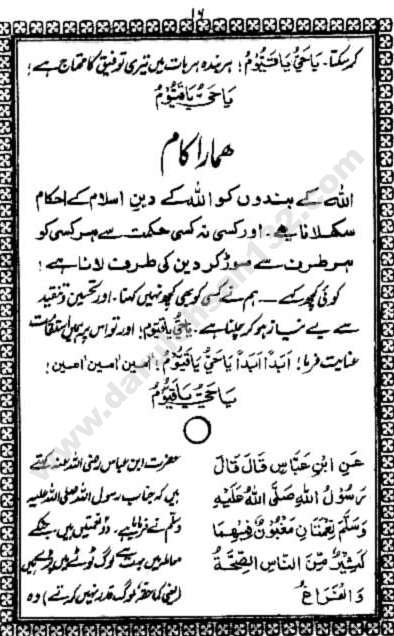 ۱۶
کر سکتا۔ یَاحَیُّ یَاقَیُّوْمُ! ہر بندہ ہر بات میں تیری توفیق کا محتاج ہے!
یَاحَیُّ یَاقَیُّوْمُ
ھمارا کام
اللہ کے بندوں کو اللہ کے دینِ اسلام کے احکام
سکھلانا ہے۔ اور کسی نہ کسی حکمت سے ہر کسی کو
ہر طرف سے موڑ کر دین کی طرف لانا ہے!
کوئی کچھ کہے — ہم نے کسی کو بھی کچھ نہیں کہنا۔ اور تحسین و تنقید
سے بے نیاز ہو کر چلنا ہے۔ یَاحَیُّ یَاقَیُّوْمُ! اور تو اس پر ہمیں استقامت
عنایت فرما! اَبَدًا اَبَدًا یَاحَیُّ یَاقَیُّوْمُ! امین! امین! امین!
یَاحَیُّ یَاقَیُّوْمُ
عَنِ ابْنِ عَبَّاسٍ قَالَ قَالَ
رَسُوْلُ اللهِ صَلَّی اللهُ عَلَیْهِ
وَسَلَّمَ نِعْمَتَانِ مَغْبُوْنٌ فِیْهِمَا
کَثِیْرٌ مِّنَ النَّاسِ الصِّحَّةُ
وَالْفَرَاغُ
حضرت ابن عباس رضی اللہ عنہ کہتے
ہیں کہ جناب رسول اللہ صلی اللہ علیہ
وسلم نے فرمایا ہے۔ دو نعمتیں ہیں جنکے
معاملہ میں بہت سے لوگ ٹوٹے میں پڑے ہیں
(یعنی کما حقہٗ لوگ قدر نہیں کرتے) وہ
www.darulehsan132.com